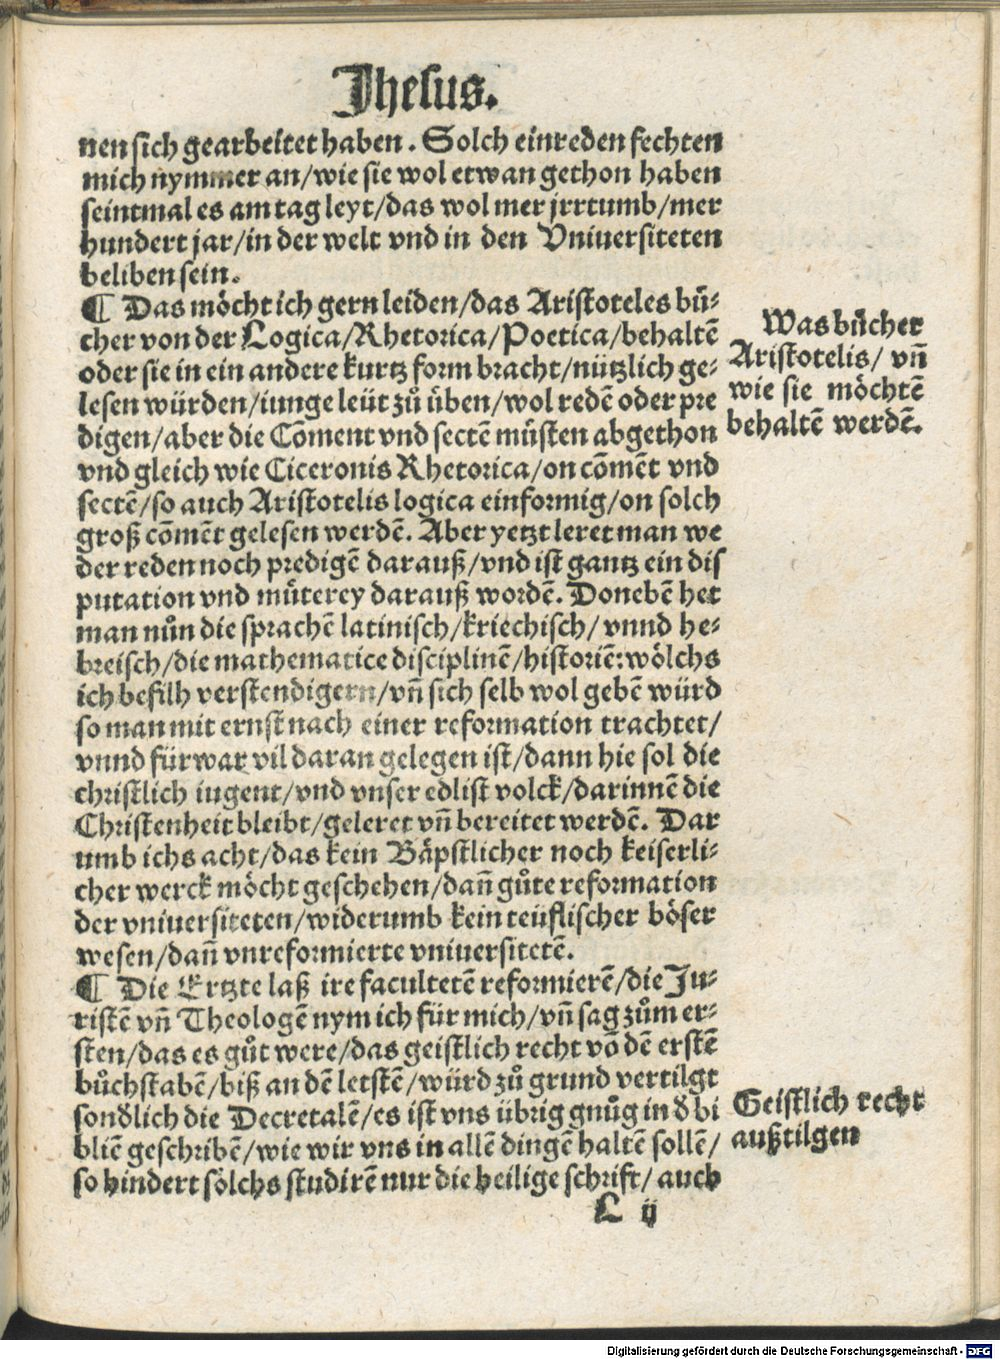 Jhesus.
nen sich gearbeitet haben. Solch einreden fechten
mich nymmer an/wie sie wol etwan gethon haben
seintmal es am tag leyt/das wol mer jrrtumb/mer
hundert jar/in der welt vnd in den Vniuersiteten
beliben sein.
¶ Das möcht ich gern leiden/das Aristoteles bů-
cher von der Logica/Rhetorica/Poetica/behaltē
oder sie in ein andere kurtz form bracht/nützlich ge-
lesen würden/iunge leüt zů üben/wol redē oder pre
digen/aber die Cōment vnd sectē můsten abgethon
vnd gleich wie Ciceronis Rhetorica/on cōmēt vnd
sectē/so auch Aristotelis logica einformig/on solch
groß cōmēt gelesen werdē. Aber yetzt leret man we
der reden noch predigē darauß/vnd ist gantz ein dis
putation vnd müterey darauß wordē. Donebē het
man nůn die sprachē latinisch/kriechisch/vnnd he-
breisch/die mathematice disciplinē/historiē: wölchs
ich befilh verstendigern/vn̄ sich selb wol gebē würd
so man mit ernst nach einer reformation trachtet/
vnnd fürwar vil daran gelegen ist/dann hie sol die
christlich iugent/vnd vnser edlist volck/darinnē die
Christenheit bleibt/geleret vn̄ bereitet werdē. Dar
umb ichs acht/das kein Bäpstlicher noch keiserli-
cher werck möcht geschehen/dan̄ gůte reformation
der vniuersiteten/widerumb kein teüflischer böser
wesen/dan̄ vnreformierte vniuersitetē.
¶ Die Ertzte laß ire facultetē reformierē/die Ju-
ristē vn̄ Theologē nym ich für mich/vn̄ sag zům er-
sten/das es gůt were/das geistlich recht vō dē erstē
bůchstabē/biß an dē letstē/würd zů grund vertilgt
sonđlich die Decretalē/es ist vns übrig gnůg in đ bi
bliē geschribē/wie wir vns in allē dingē haltē sollē/
so hindert sölchs studirē nur die heilige schrift/auch
L ij
Was bůcher
Aristotelis/ vn̄
wie sie möchtē
behaltē werdē.
Geistlich recht
außtilgen
Digitalisierung gefördert durch die Deutsche Forschungsgemeinschaft - DFG